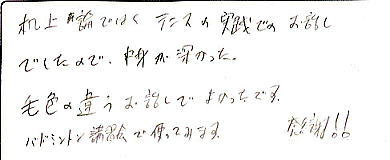 机上論ではなく テニスの実践でのお話し
でしたので、中身が深かった。
毛色の違うお話しでよかったです。
バドミントン講習会で使ってみます。 感謝!!